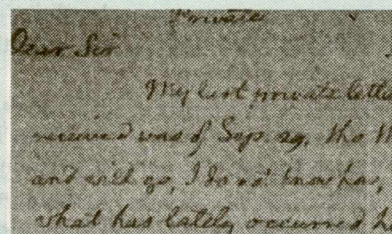 Private
Dear Sir
My last private lette
received was of Sep. 29, tho'
and will go, I do not know how,
what has lately occurred